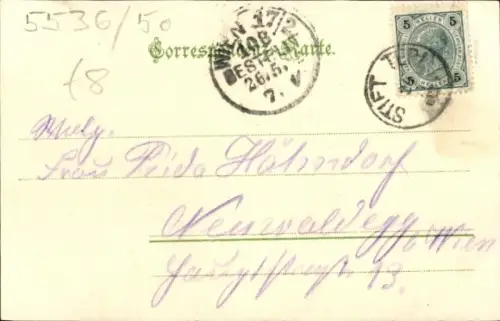 5536/50
18
Correspondenz-Karte.
WIEN 17/2
10B
BESTELLT
26.5.
7. V
5 5
5 5
STIFT TEPL
Wohlg.
Frau Frida Höhndorf
Neuwaldegg b/Wien
Hauptstraße 13.